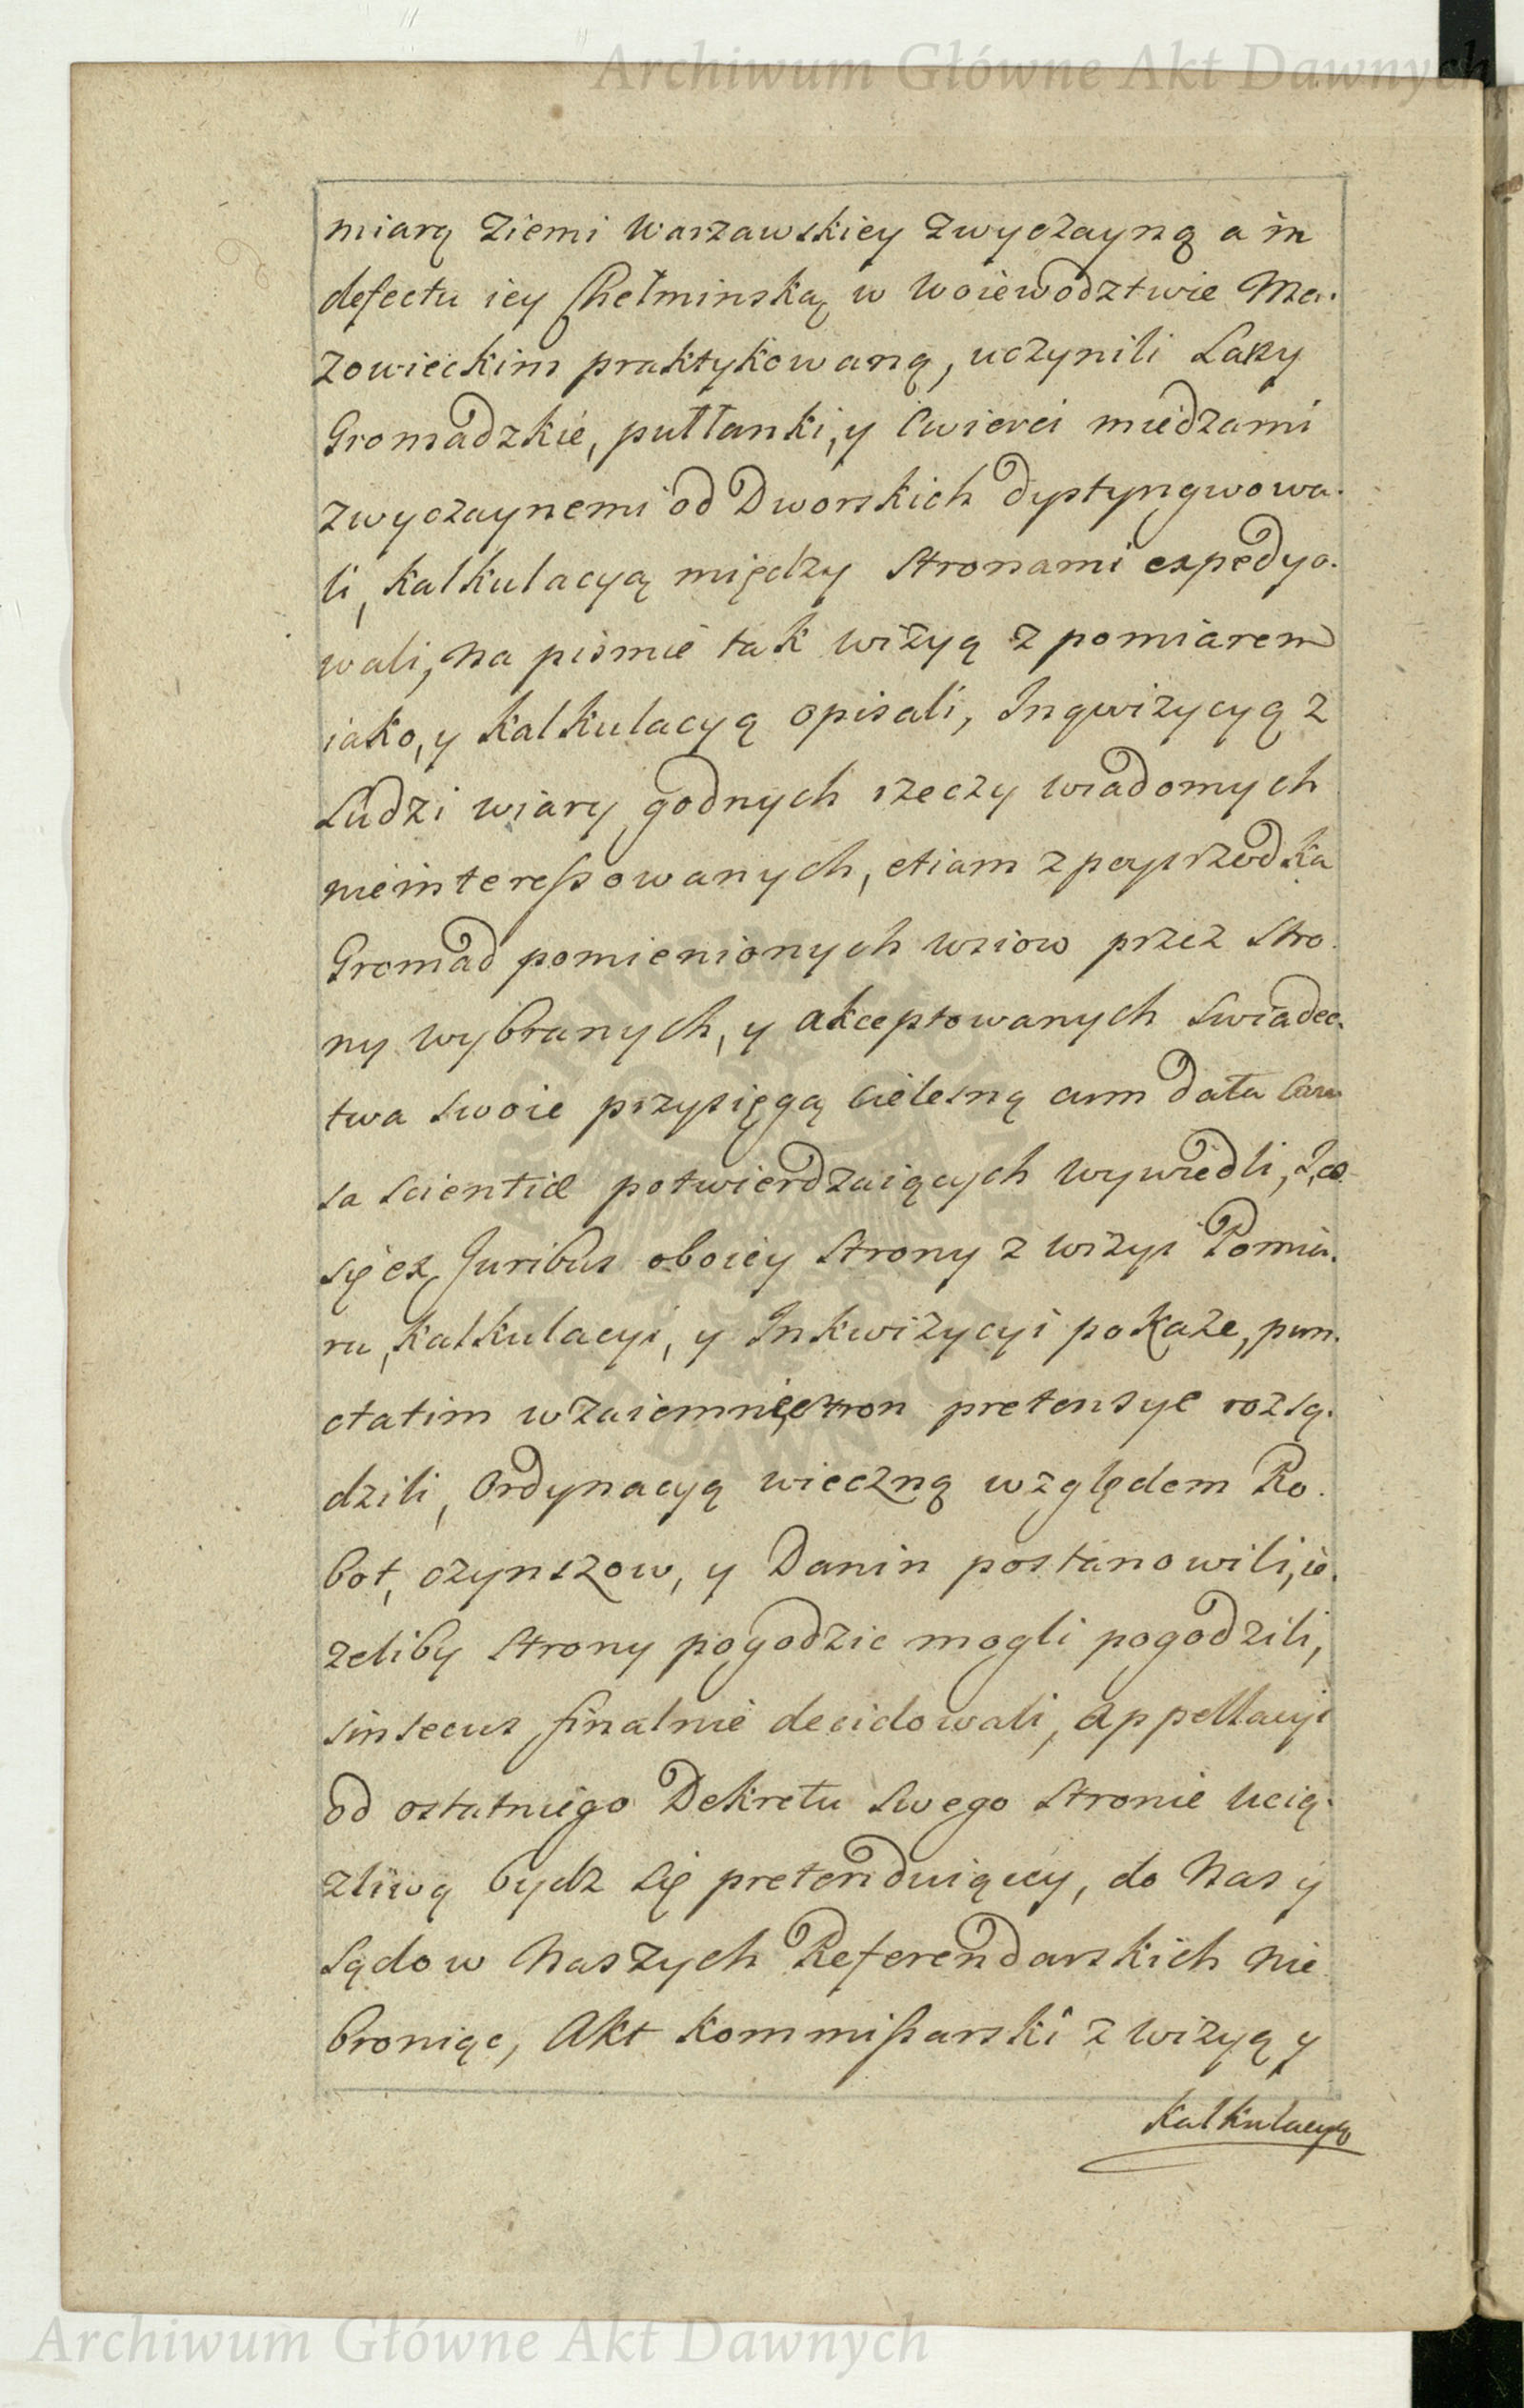 Archiwum Główne Akt Dawnych
miarą Ziemi Warszawskiey Zwyczayną a in
defectu iey Chełminską w Woiewodztwie Ma.
zowieckim praktykowaną, uczynili Łany
Gromadzkie, pułłanki, y Cwierci miedzami
zwyczaynemi od Dworskich dystyngwowa.
li, Kalkulacyą między Stronami expedyo.
wali, Na pismie tak wizyą z pomiarem
iako, y Kalkulacyą opisali, Inqwizycyą z
Ludzi wiary godnych rzeczy wiadomych
nieinteressowanych, etiam z posrzodka
Gromad pomienionych wsiow przez Stro.
ny wybranych, y akceptowanych Swiadec.
twa swoie przysięgą cielesną cum data Cau
sa scientiæ potwierdzaiących wywiedli, I co
się ex Juribus oboiey Strony z wizyi Pomia.
ru, Kalkulacyi, y Inkwizycyi pokaże, pun.
ctatim wzaiemnie stron pretensye rozsą.
dzili, Ordynacyą wieczną względem Ro.
bot, czynszow, y Danin postanowili, ie.
zeliby Strony pogodzic mogli pogodzili,
sin secus finalnie decidowali, Appellacyi
od ostatniego Dekretu Swego Stronie Ucią.
zliwą bydz się pretenduiącey, do Nas y
Sądow Naszych Referendarskich nie
broniąc, Akt Kommissarski z wizyą y
Kalkulacyą
Archiwum Główne Akt Dawnych